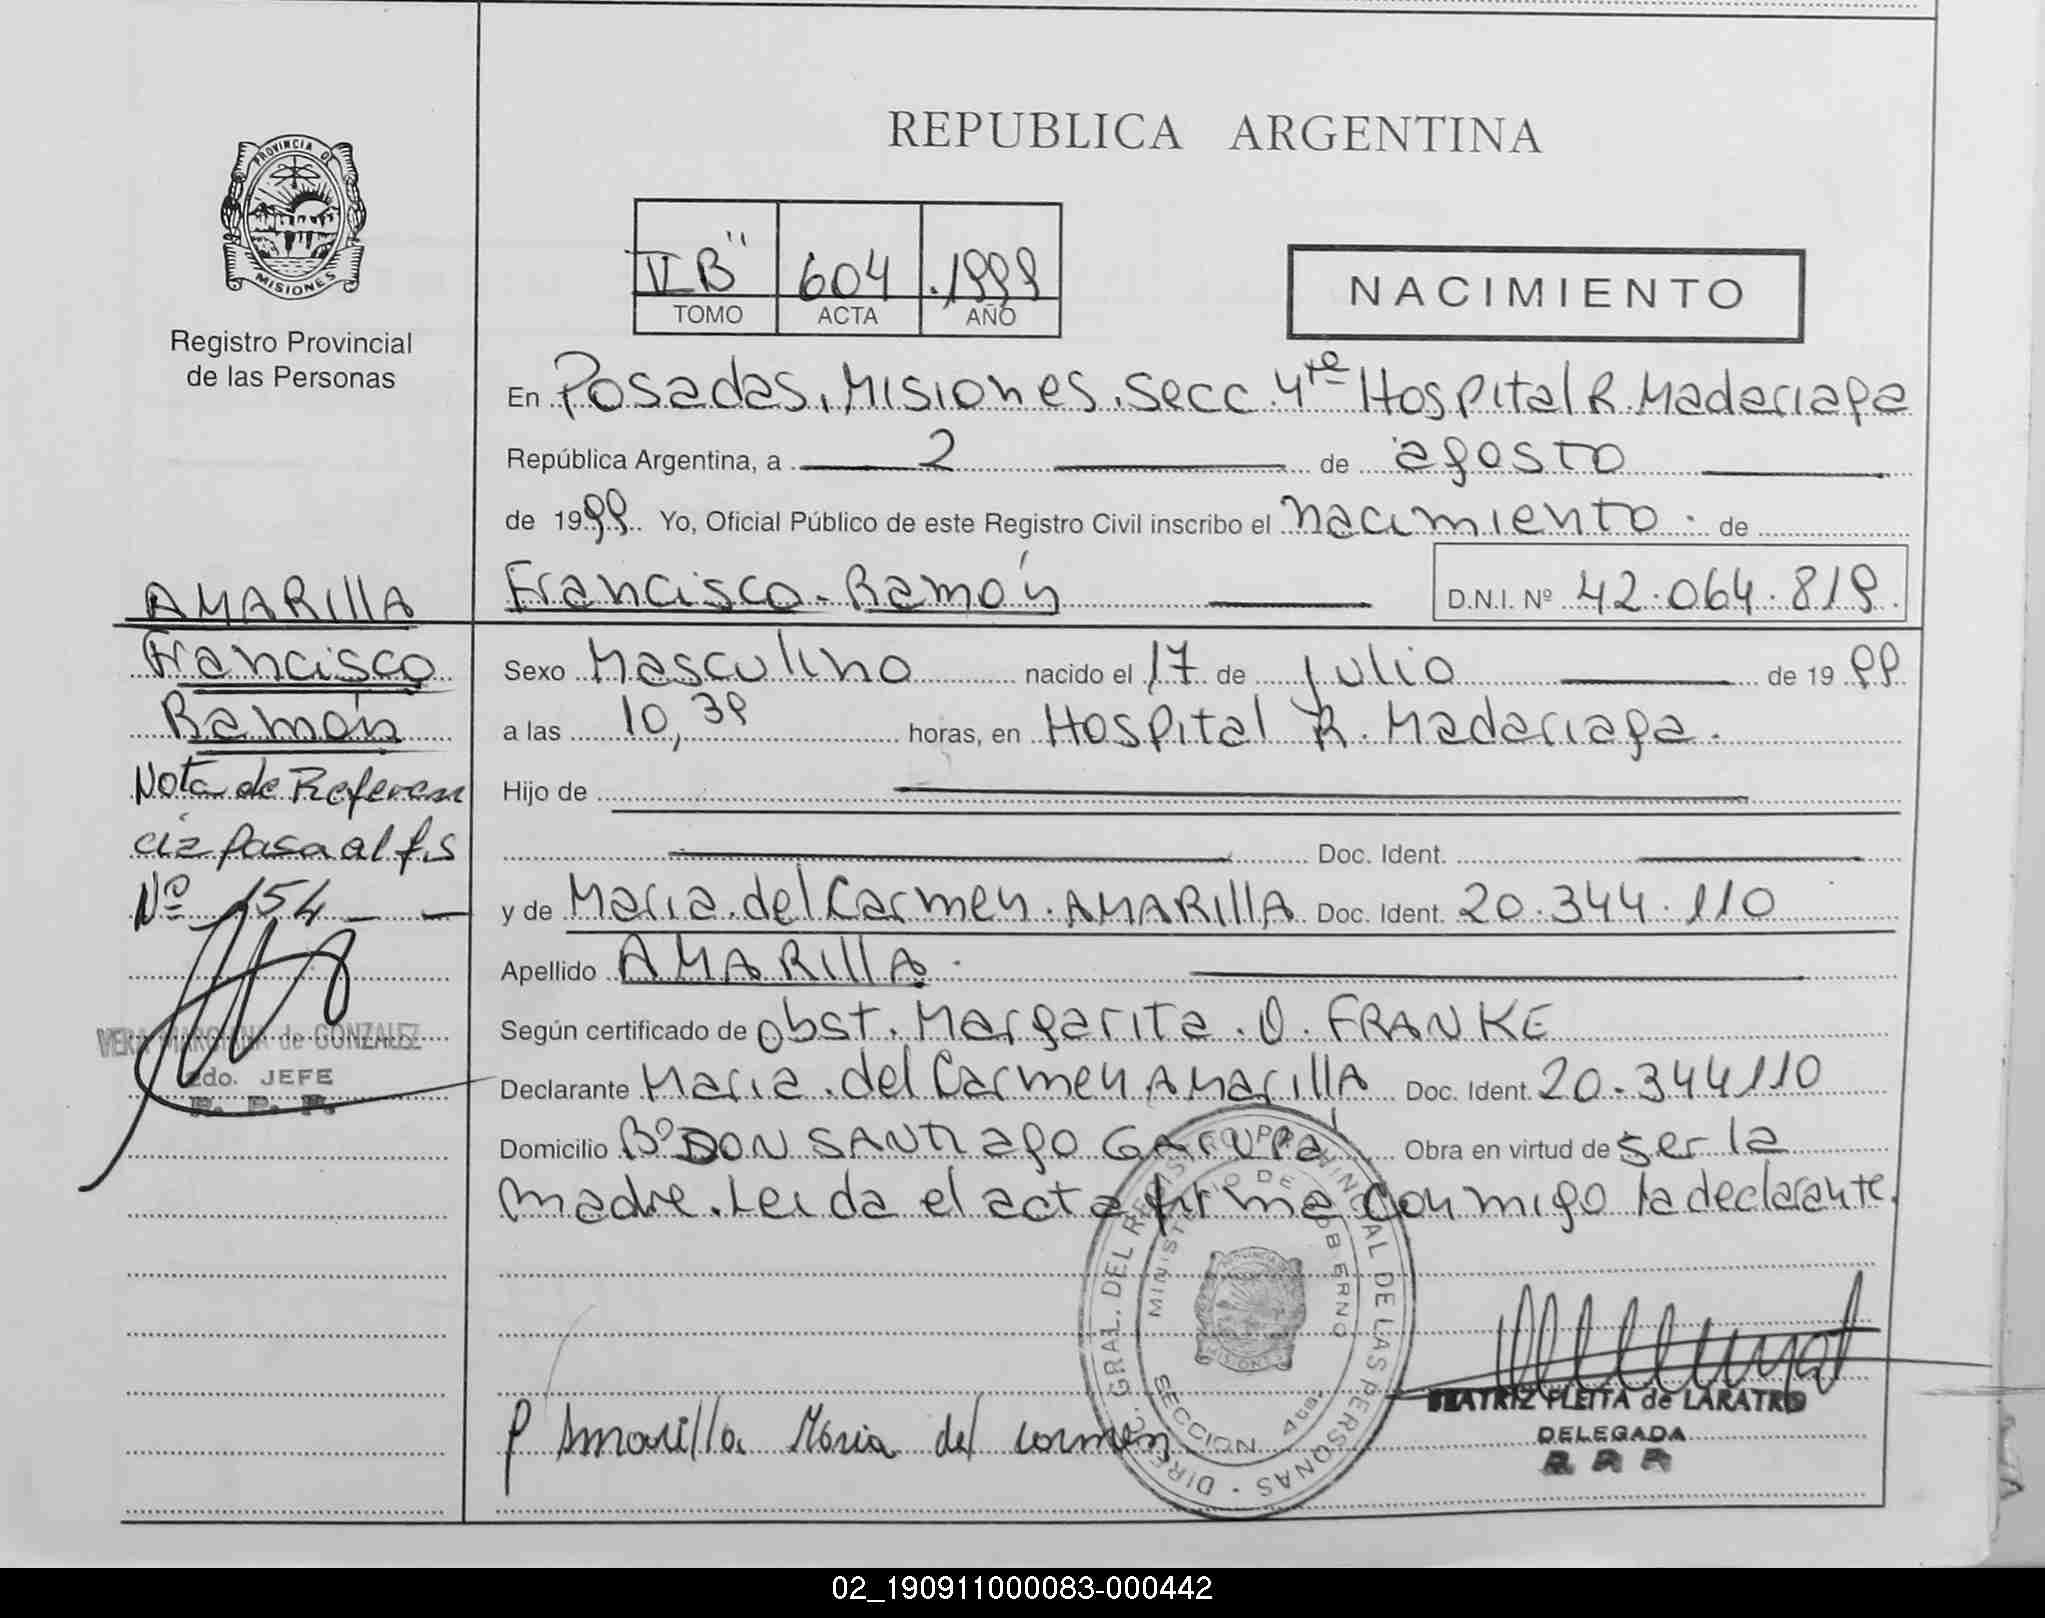 REPUBLICA ARGENTINA
PROVINCIA DE
MISIONES
Registro Provincial
de las Personas
II B" 604 .1999
TOMO ACTA AÑO
NACIMIENTO
En Posadas, Misiones, Secc. 4ta Hospital R. Madariaga
República Argentina, a 2 de agosto
de 1999. Yo, Oficial Público de este Registro Civil inscribo el nacimiento de
Francisco Ramón D.N.I. Nº 42.064.819.
AMARILLA
Francisco
Ramón
Nota de Referen
cia pasa al fs
Nº 154
VERA MARGIANA de GONZALEZ
2do. JEFE
R. P. P.
Sexo Masculino nacido el 17 de julio de 1999
a las 10,39 horas, en Hospital R. Madariaga.
Hijo de
Doc. Ident.
y de Maria del Carmen AMARILLA Doc. Ident. 20.344.110
Apellido AMARILLA.
Según certificado de obst. Margarita O. FRANKE
Declarante Maria del Carmen AMARILLA Doc. Ident. 20.344110
Domicilio Bº DON SANTIAGO GARUPA Obra en virtud de ser la
madre. Leida el acta firma conmigo la declarante.
DIREC. GRAL. DEL REGISTRO PROVINCIAL DE LAS PERSONAS
MINISTERIO DE GOBIERNO
SECCION 4ta.
P Amarilla Maria del carmen
BEATRIZ PLETTA de LARATRO
DELEGADA
R P P
02_190911000083-000442